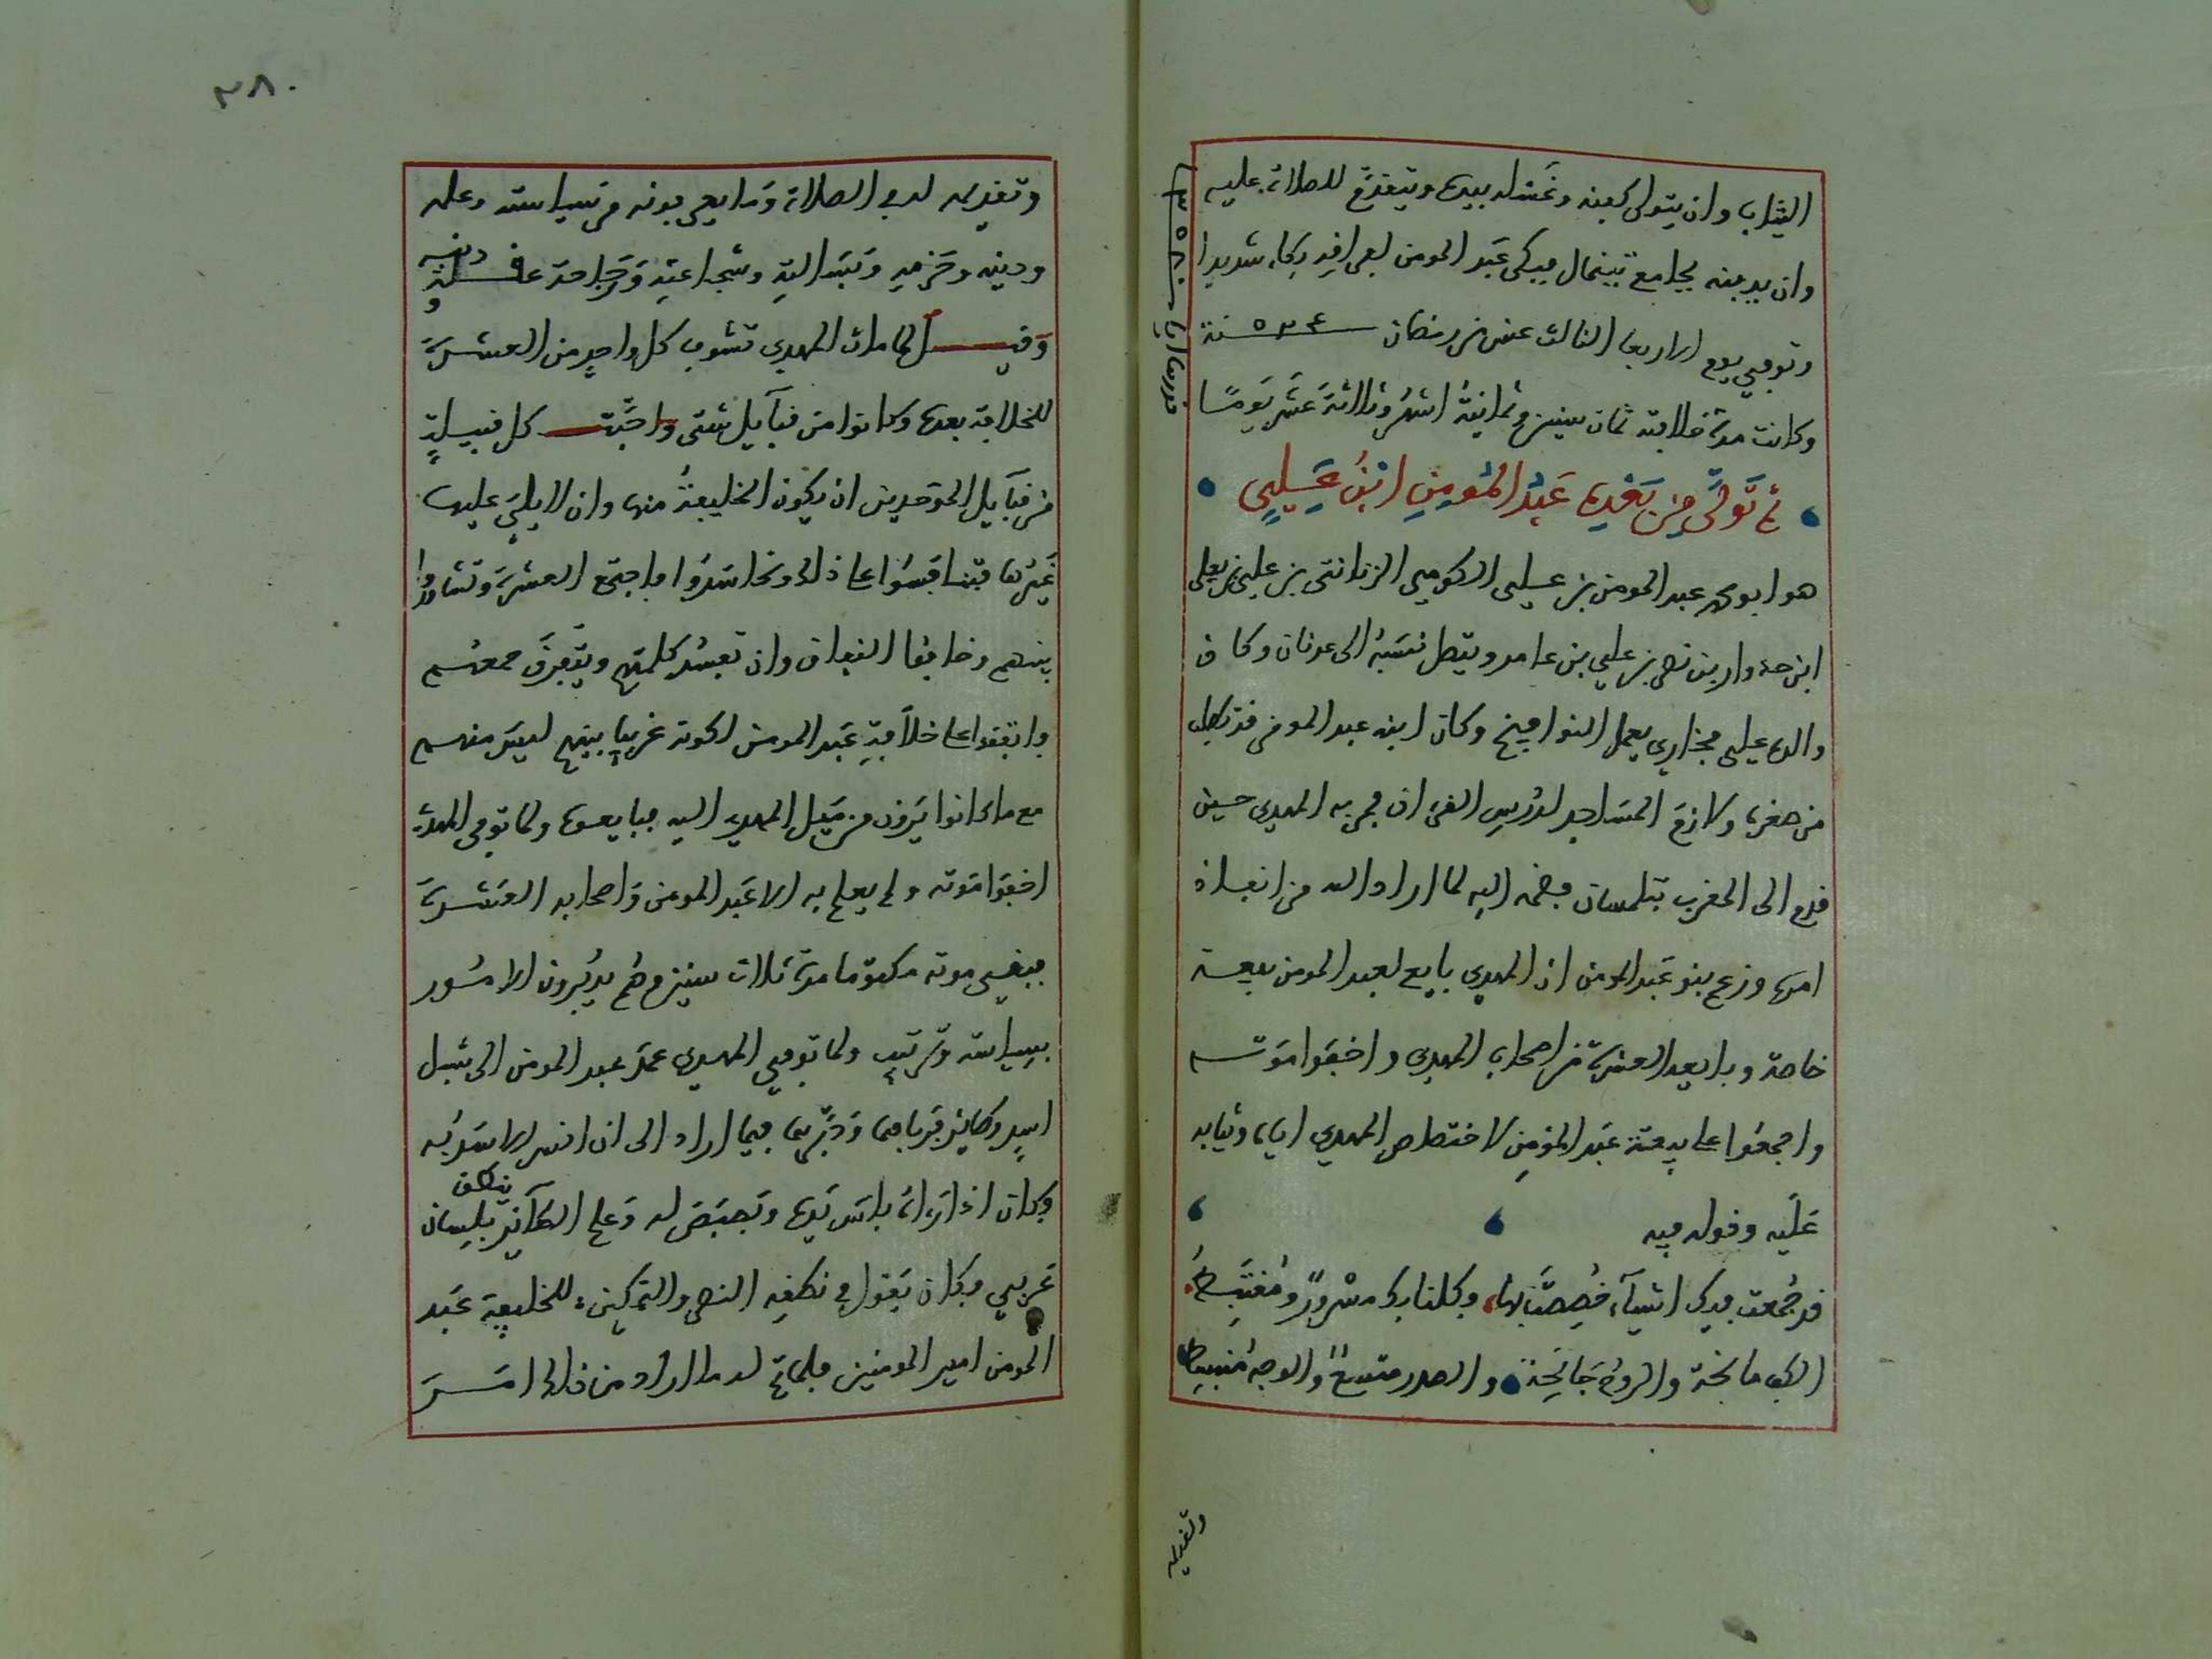 الثياب وان يتولى كفنه وغسله بيده ويتقدم للصلاة عليه
وان يدفنه بجامع تينمال فبكى عبد المومن لفراقه بكاء شديدا
وتوفي يوم الاربعا الثالث عشر من رمضان سنة ٥٢٤
وكانت مدة خلافته ثمان سنين وثمانية اشهر وثلاثة عشر يومًا
ثم تولى من بعده عبد المومن ابن علي
هو ابو محمد عبد المومن بن علي الكومي الزناتى بن علي بن يعلى
ابن حذوار بن نصر بن علي بن عامر ويتصل نسبه الى عدنان وكان
والده علي فخاري يعمل النوافيخ وكان ابنه عبد المومن قد تطلب
من صغره ولازم المساجد لدرس القران فمر به المهدي حين
قدم الى المغرب بتلمسان فضمه اليه لما اراد الله من انفاذ
امره وزعم بنو عبد المومن ان المهدي بايع لعبد المومن بيعة
خاصة وبايعه العشرة من اصحاب المهدي واخفوا موته
واجمعوا على بيعة عبد المومن لاختصاص المهدي اياه وثيابه
عليه وقوله فيه
قد جمعت فيك اشيآء خصصت بها وكلنا بك مسرور ومغتبط
الكف مانحة والروح جانحة والصدر متسع والوجه منبسط
وتقديمه
٣٨٠
وتقديمه له في الصلاة وما يعرفونه من سياسته وعلمه
ودينه وحزمه وبسالته وشجاعته ورجاحة عقله ودينه
وقيل لما مات المهدي تشوف كل واحد من العشرة
للخلافة بعده وكانوا من قبآيل شتى واحبت كل قبيلة
من قبآيل الموحدين ان يكون الخليفة منها وان لا يلي عليها
غيرها فتنافسوا على ذلك وتحاسدوا فاجتمع العشرة وتشاوروا
بينهم وخافوا النفاق وان تفسد كلمتهم ويتفرق جمعهم
فاتفقوا على خلافة عبد المومن لكونه غريبا بينهم ليس منهم
مع ما كانوا يرون من ميل المهدي اليه فبايعوه ولما توفي المهدي
اخفوا موته ولم يعلم به الا عبد المومن واصحابه العشرة
فبقى موته مكتوما مدة ثلاث سنين وهم يدبرون الامور
بسياسته وترتيب ولما توفي المهدي عمد عبد المومن الى شبل
اسد وطائر فرباهما ودربهما فيما اراد الى ان انس الاسد به
وكان اذا راه باس يده وبصبص له وعلم الطآئر ينطق بلسان
عربي فكان يقول في نطقه النصر والتمكين، للخليفة عبد
المومن امير المومنين فلما تم له ما اراد من ذلك امر